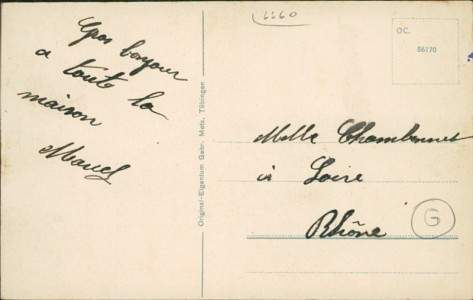 1160
Gros bonjour
a toute la
maison
Original-Eigentum Gebr. Metz, Tübingen
OC.
86170
Melle
à Loire
Rhône
G